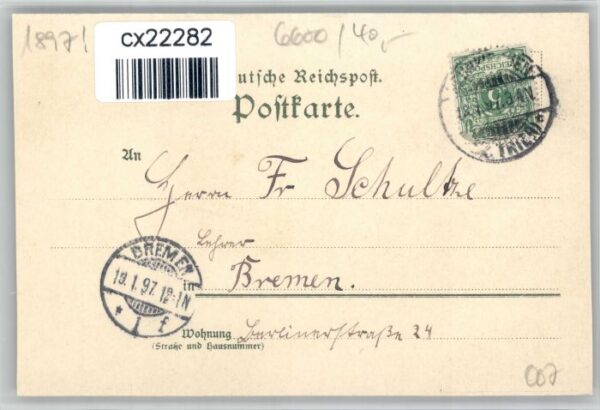 1897!
cx22282
6600/40,-
Deutsche Reichspost.
Postkarte.
5
TRIER
An
Herrn Fr Schultze
Lehrer
in Bremen.
BREMEN
19.1.97.12-1N
* 1 f
Wohnung Berlinerstraße 24
(Straße und Hausnummer)
007